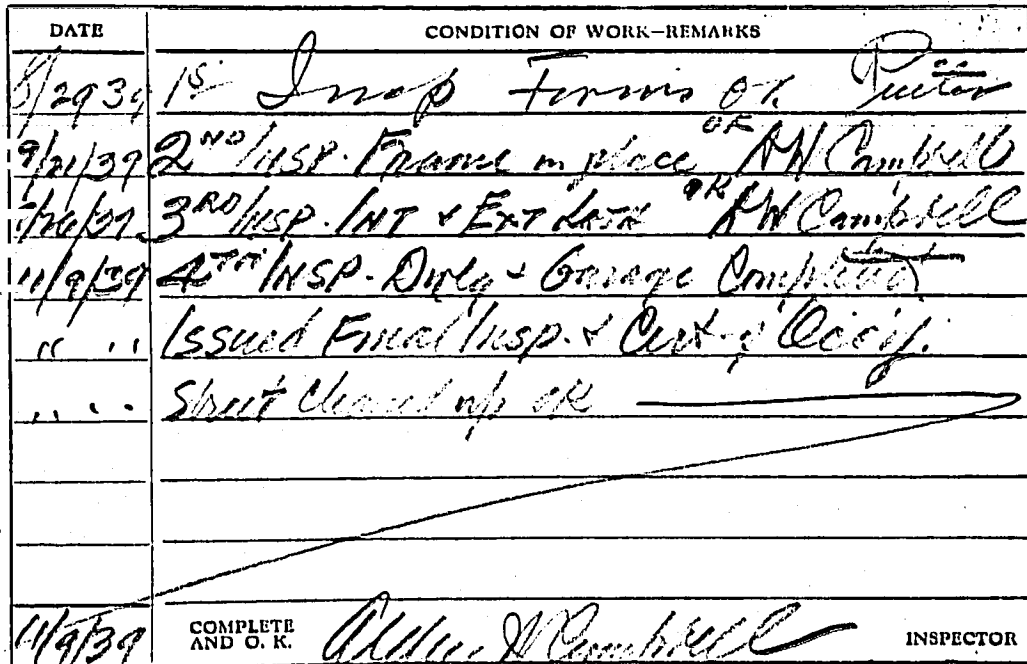 DATE CONDITION OF WORK—REMARKS
8/29 39 1st Insp Forms OK
9/21/39 2ND INSP. Frame in place OK AW Campbell
3RD INSP. INT & EXT LATH OK AW Campbell
11/9/39 4TH INSP. Dwlg & Garage Completed
" " Issued Final Insp. & Cert. of Occy.
" " Street cleaned up OK
11/9/39 COMPLETE AND O. K. Campbell INSPECTOR